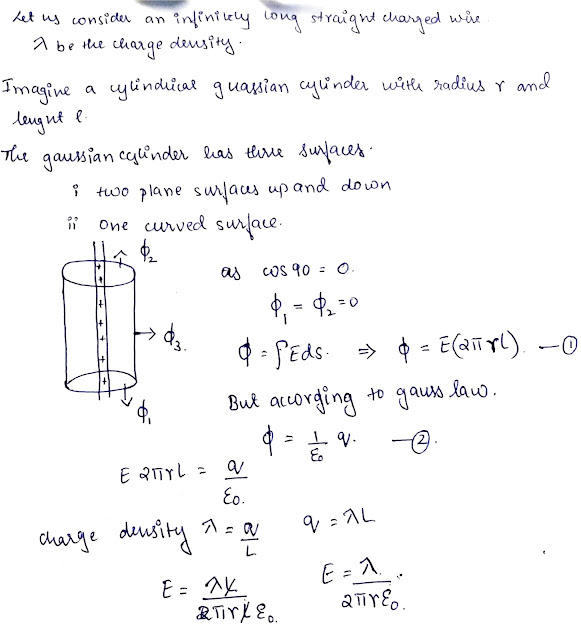 Let us consider an infinitely long straight charged wire.
λ be the charge density.
Imagine a cylindrical guassian cylinder with radius r and
lenght l.
The gaussian cylinder has three surfaces.
i two plane surfaces up and down
ii one curved surface.
ϕ₂
as cos 90 = 0.
ϕ₁ = ϕ₂ = 0
ϕ₃.
ϕ = ∫Eds. ⇒ ϕ = E(2πrL) —①
ϕ₁
But according to gauss law.
ϕ = 1/ε₀ q. —②.
E 2πrL = q/ε₀.
charge density λ = q/L q = λL
E = λL/2πrLε₀ E = λ/2πrε₀.